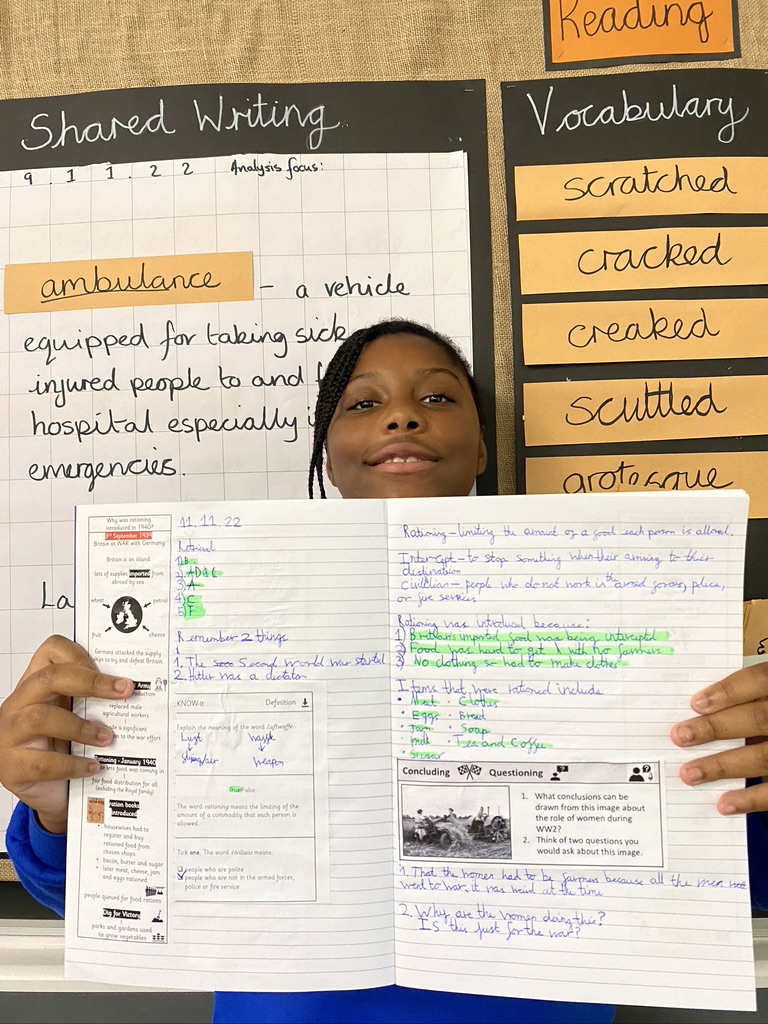 Reading
Shared Writing
9.11.22 Analysis focus:
ambulance - a vehicle
equipped for taking sick
injured people to and
hospital especially
emergencies.
La
Vocabulary
scratched
cracked
creaked
scuttled
grotesque
Why was rationing
introduced in 1940?
3rd September 1939
Britain at WAR with Germany
Britain is an island
lots of supplies imported from
abroad by sea
wheat
petrol
fruit
cheese
Germans attacked the supply
ships to try and defeat Britain.
Army
production
replaced male
agricultural workers
a significant
to the war effort
Rationing - January 1940
less food was coming in
fair food distribution for all
(including the Royal family)
ration books
introduced
• housewives had to
register and buy
rationed food from
chosen shops
• bacon, butter and sugar
• later meat, cheese, jam
and eggs rationed
people queued for food rations
Dig for Victory
parks and gardens used
to grow vegetables
11.11.22
Retrieval
1) B
2) AD&C
3) A
4) C
5) F
Remember 2 things
1. The Second World War started
2. Hitler was a dictator
KNOW-it Definition
Explain the meaning of the word Luftwaffe.
Luft waffe
air weapon
True
The word rationing means the limiting of the
amount of a commodity that each person is
allowed.
Tick one. The word civilians means:
people who are polite
people who are not in the armed forces,
police or fire service
Rationing - limiting the amount of a good each person is allowed.
Intercept - to stop something when their arriving to their
destination
Civilian - people who do not work in the armed forces, police,
or fire services
Rationing was introduced because:
1) Britain's imported food was being intercepted
2) Food was hard to get with no farmers
3) No clothing so had to make clothes
Items that were rationed include
• Meat • Clothes
• Eggs • Bread
• Jam • Soap
• Milk • Tea and Coffee
• Sugar
Concluding Questioning
1. What conclusions can be
drawn from this image about
the role of women during
WW2?
2. Think of two questions you
would ask about this image.
1. That the women had to be farmers because all the men
went to war, it was weird at the time
2. Why are the women doing this?
Is this just for the war?